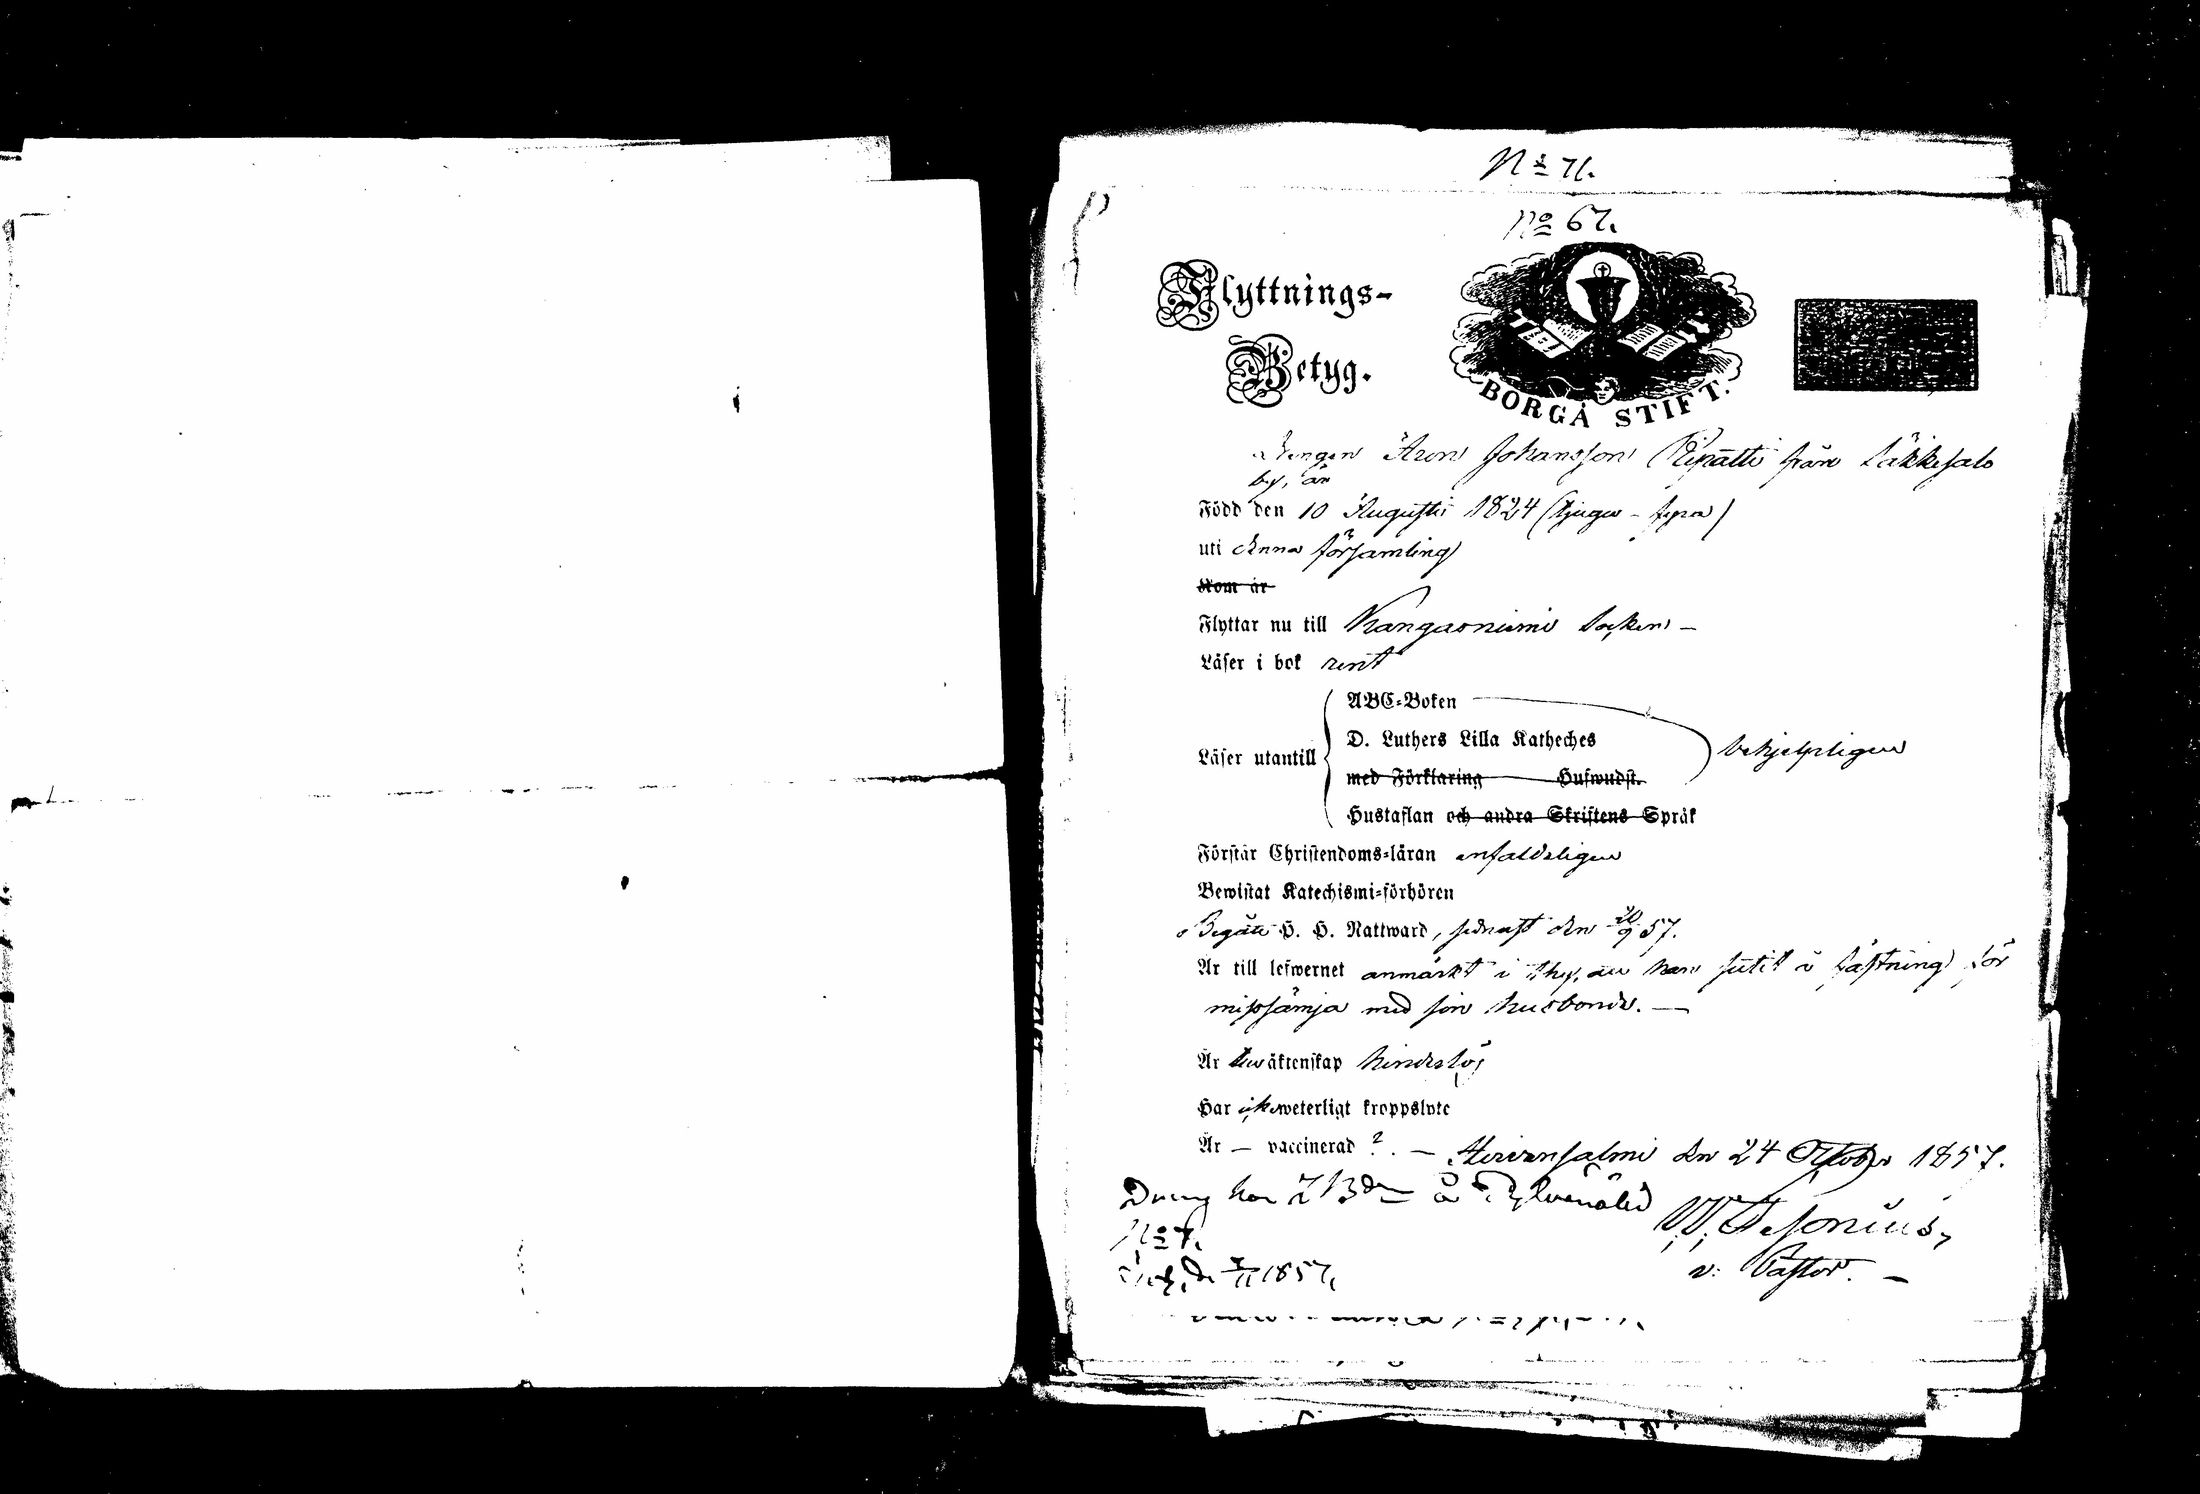 No 71.
No 67.
Flyttnings-
Betyg.
BORGÅ STIFT.
Drengen Aron Johansson Ripatti från Läkkesalo
by, är
Född den 10 Augusti 1824 (tjugu-fyra)
uti denna församling
Kom år
Flyttar nu till Kangasniemi Socken —
Läser i bok rent
ABC-Boken
D. Luthers Lilla Katheches
Läser utantill
behjelpligen
med Förklaring Hufwudst.
Hustaflan och andra Skriftens Språk
Förstår Christendoms-läran enfaldeligen
Bewistat Katechismi-förhören
Begått H. H. Nattward, sednast den 20/9 57.
Är till lefwernet anmärkt i thy, att han sutit i fästning för
missämja med sin husbonde. —
Är till äktenskap hinderslös
Har icke weterligt kroppslyte
Är — vaccinerad ?. — Hirvensalmi den 24 October 1857.
Dräng hos
No 7.
1857.
v: Pastor. —